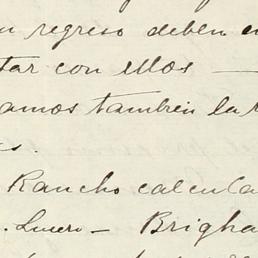 regreso deben
tar con ellos —
amos tambien la
Rancho calcula
. Lucero – Brigha